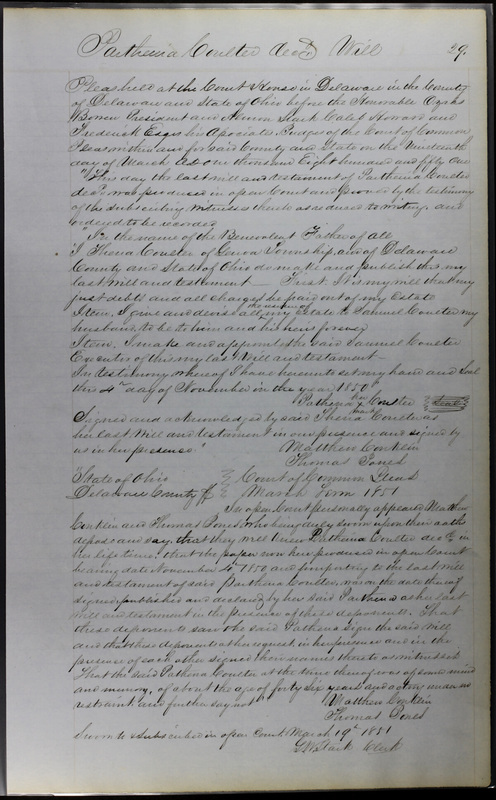 Parthenia Coulter decd Will 29.
Pleas held at the Court House in Delaware in the County
of Delaware and State of Ohio before the Honorable
Bowen President and Stark Caleb Howard and
Frederick Esqrs his Associate Judges of the Court of Common
Pleas within and for said County and State on the Nineteenth
day of March A.D. One thousand Eight hundred and fifty One
"This day the last will and testament of Parthenia Coulter
decd was produced in open Court and proven by the testimony
of the subscribing witnesses thereto as reduced to writing and
ordered to be recorded
"In the name of the Benevolent Father of all
I Thenia Coulter of Genoa Township and of Delaware
County and State of Ohio do make and publish this my
last will and testament First. It is my will that my
just debts and all charges be paid out of my Estate
Item. I give and devise all the residue of my Estate to Samuel Coulter my
husband to be to him and his heirs forever
Item. I make and appoint the said Samuel Coulter
Executor of this my last Will and testament
In testimony whereof I have hereunto set my hand and seal
this 4th day of November in the year 1850
Parthena her x mark Coulter seal
Signed and acknowledged by said Thenia Coulter as
her last Will and testament in our presence and signed by
us in her presence."
Matthew Conklin
Thomas Jones
State of Ohio Court of Common Pleas
Delaware County ss March Term 1851
In open Court personally appeared Matthew
Conklin and Thomas Jones who being duly sworn upon their oaths
depose and say, that they well knew Parthena Coulter decd in
her life time, that the paper now here produced in open Court
bearing date November 4th 1850 and purporting to be the last will
and testament of said Parthena Coulter, was on the date thereof
signed published and declared by her said Parthena as her last
Will and testament in the presence of these deponents. That
these deponents saw the said Parthena sign the said Will
and that these deponents at her request in her presence and in the
presence of each other signed their names thereto as witnesses
That the said Parthena Coulter at the time thereof was of sound mind
and memory, of about the age of forty six years and acting under no
restraint and further say not"
Matthew Conklin
Thomas Jones
Sworn to & subscribed in open Court March 19th 1851
Stark Clerk